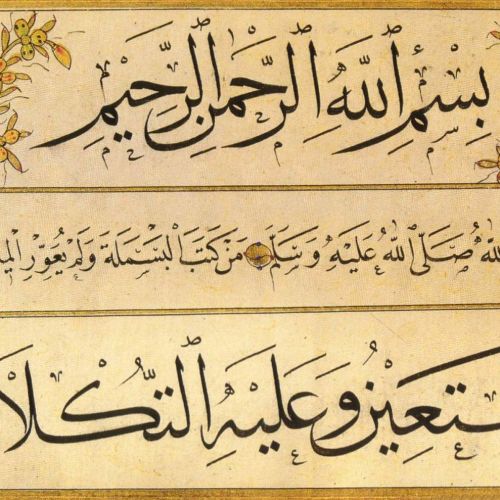 بِسْمِ اللَّهِ الرَّحْمَٰنِ الرَّحِيمِ
صَلَّى اللَّهُ عَلَيْهِ وَسَلَّمَ مَنْ كَتَبَ الْبَسْمَلَةَ وَلَمْ يُعَوِّرِ
وَعَلَيْهِ التُّكْلَا